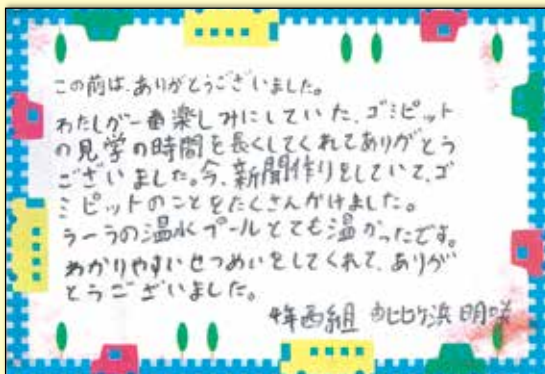 この前は、ありがとうございました。
わたしが一番楽しみにしていた、ゴミピット
の見学の時間を長くしてくれてありがとう
ございました。今、新聞作りをしていて、ゴ
ミピットのことをたくさんかけました。
ラーラの温水プールとても温かったです。
わかりやすいせつめいをしてくれて、ありが
とうございました。
4年西組 由比ヶ浜 明